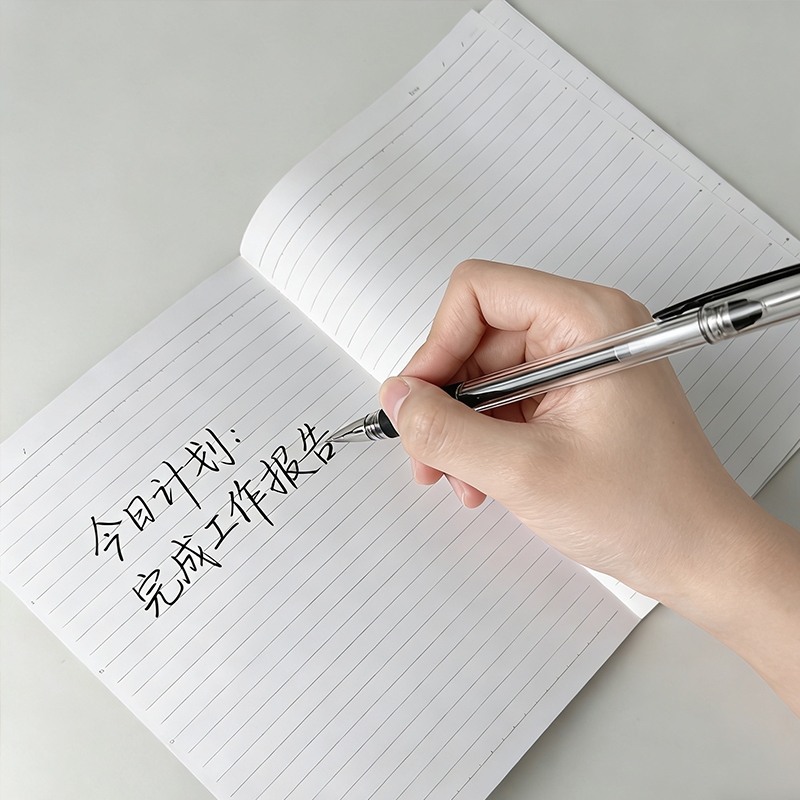 今日计划:
完成工作报告